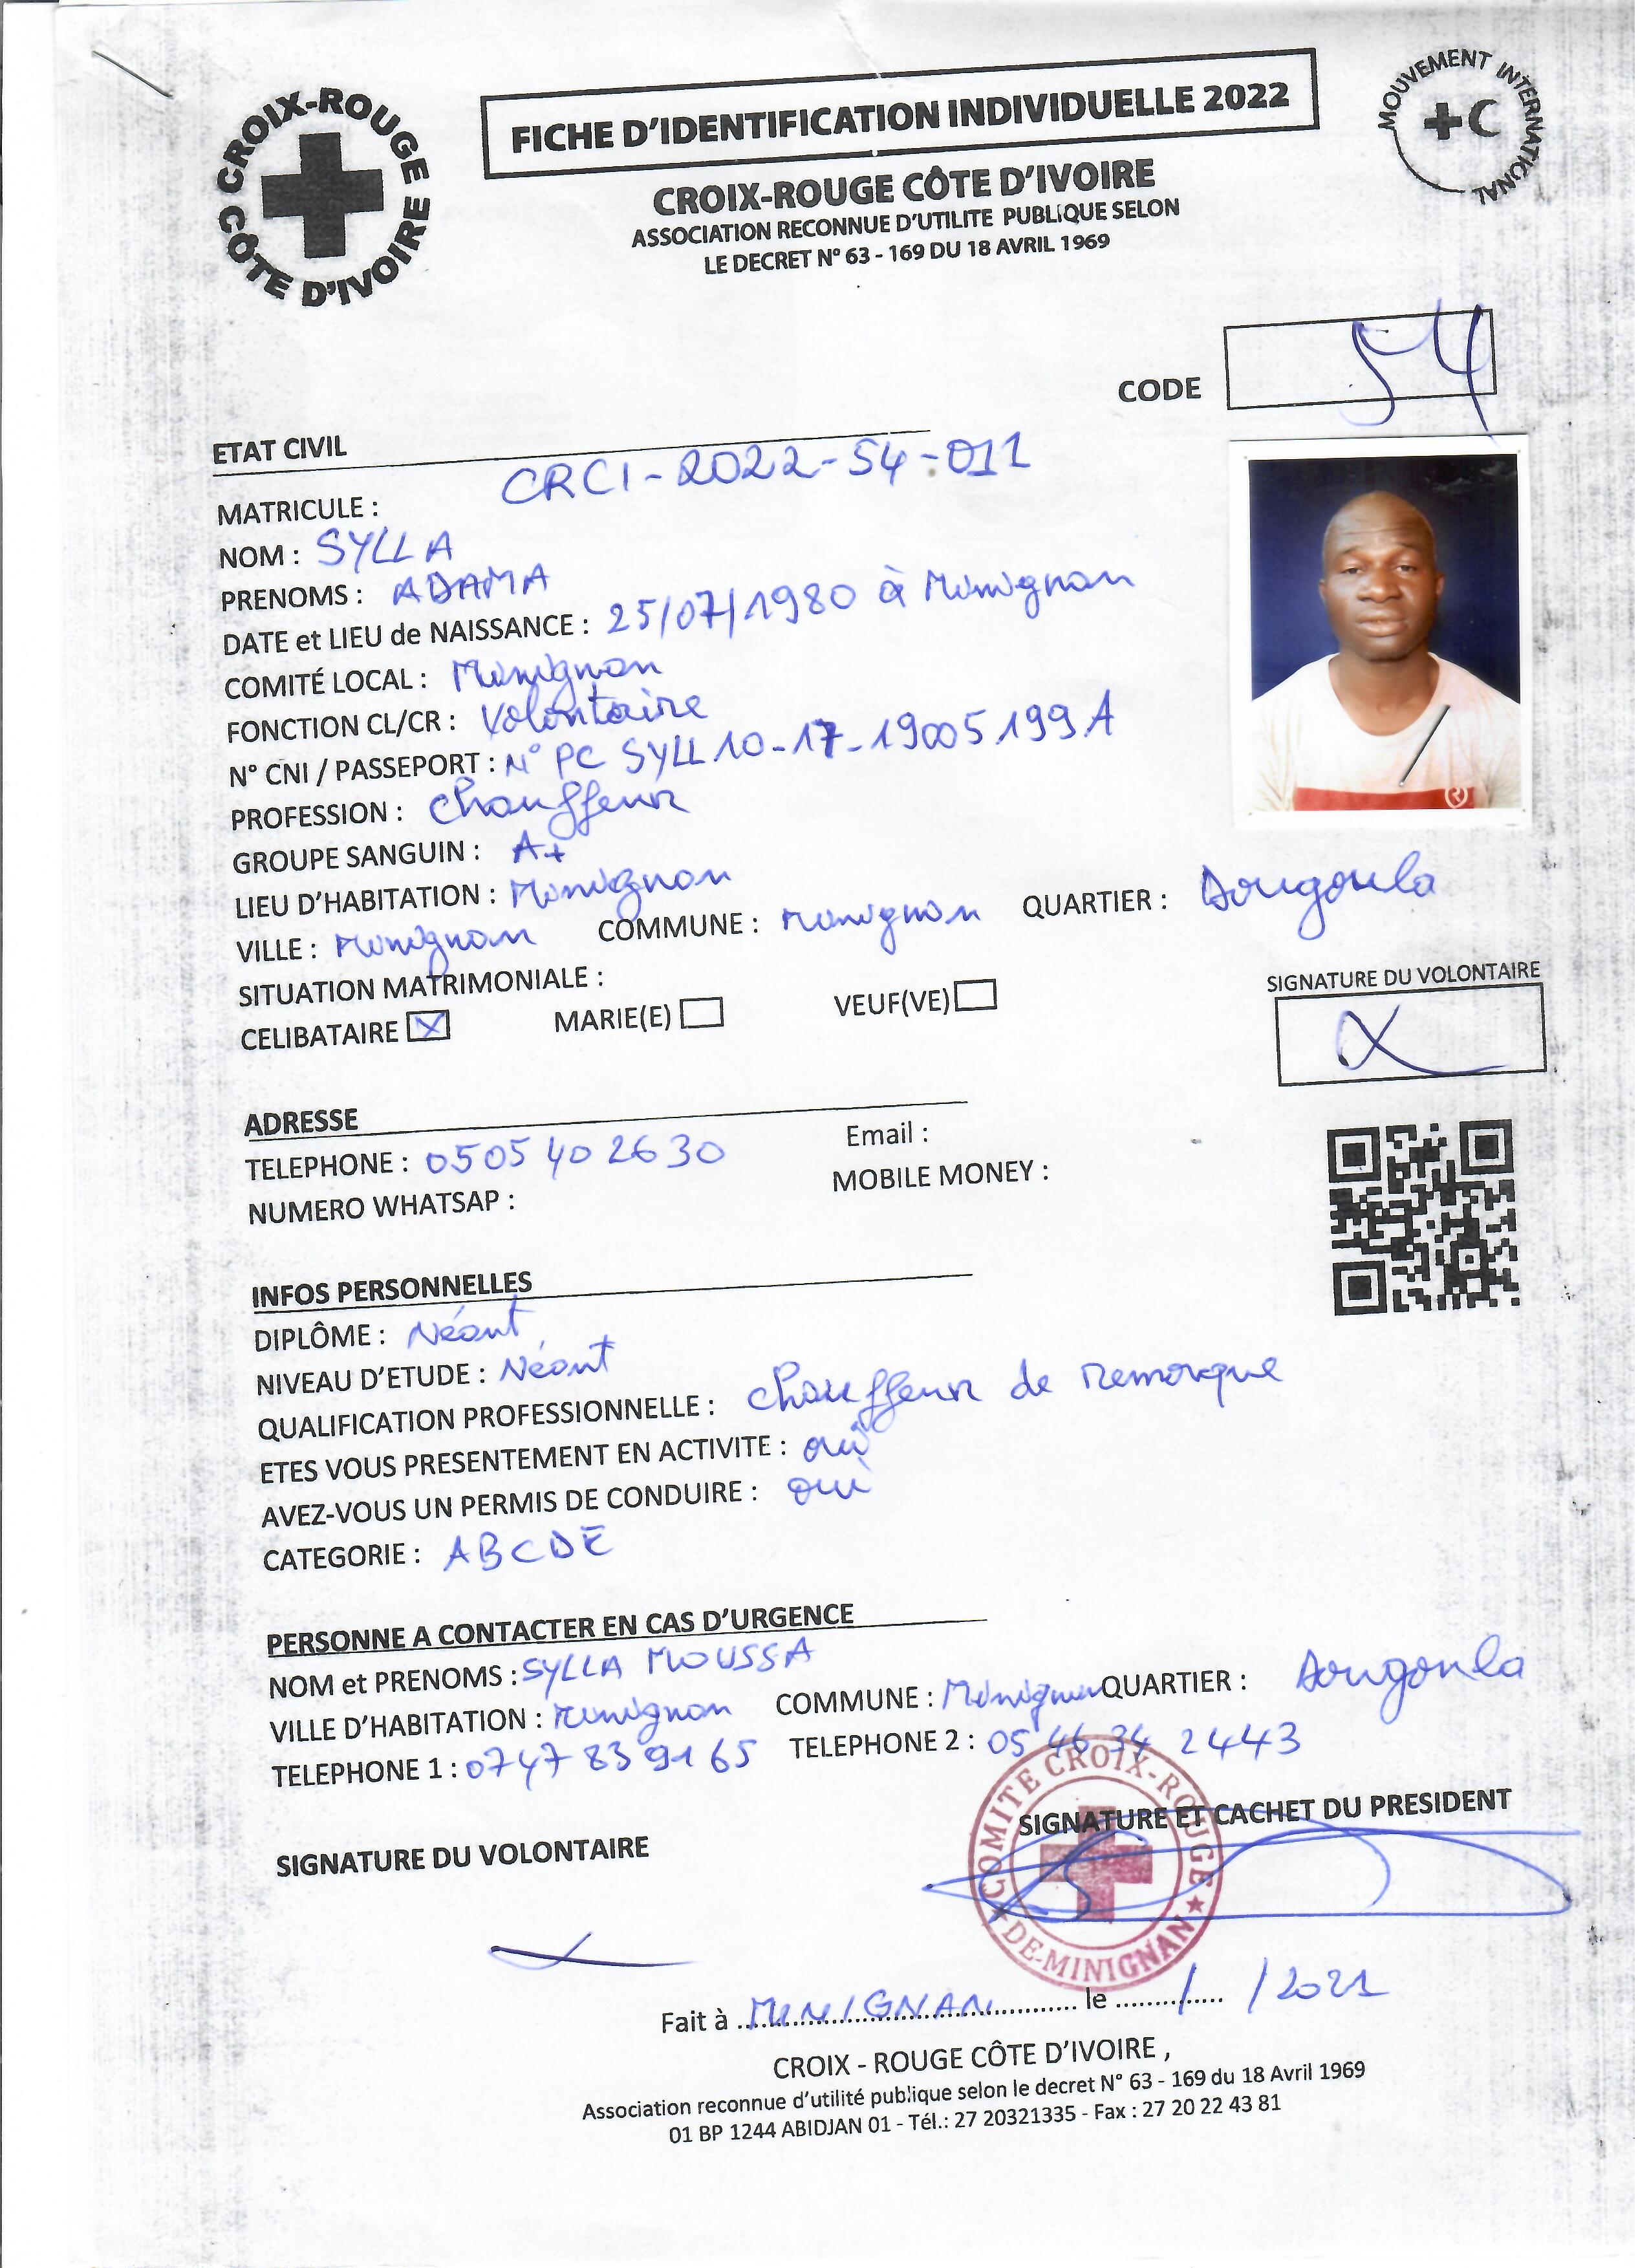 CROIX-ROUGE CÔTE D'IVOIRE
FICHE D'IDENTIFICATION INDIVIDUELLE 2022
MOUVEMENT INTERNATIONAL
CROIX-ROUGE CÔTE D'IVOIRE
ASSOCIATION RECONNUE D'UTILITE PUBLIQUE SELON
LE DECRET N° 63 - 169 DU 18 AVRIL 1969
CODE 54
ETAT CIVIL
MATRICULE : CRCI-2022-54-011
NOM : SYLLA
PRENOMS : ADAMA
DATE et LIEU de NAISSANCE : 25/07/1980 à Minignan
COMITÉ LOCAL : Minignan
FONCTION CL/CR : Volontaire
N° CNI / PASSEPORT : N° PC SYLL10-17-19005199A
PROFESSION : Chauffeur
GROUPE SANGUIN : A+
LIEU D'HABITATION : Minignan
VILLE : Minignan COMMUNE : Minignan QUARTIER : Dougoula
SITUATION MATRIMONIALE :
CELIBATAIRE X MARIE(E) VEUF(VE)
SIGNATURE DU VOLONTAIRE
ADRESSE
TELEPHONE : 0505402630 Email :
NUMERO WHATSAP : MOBILE MONEY :
INFOS PERSONNELLES
DIPLÔME : Néant
NIVEAU D'ETUDE : Néant
QUALIFICATION PROFESSIONNELLE : Chauffeur de remorque
ETES VOUS PRESENTEMENT EN ACTIVITE : oui
AVEZ-VOUS UN PERMIS DE CONDUIRE : oui
CATEGORIE : ABCDE
PERSONNE A CONTACTER EN CAS D'URGENCE
NOM et PRENOMS : SYLLA MOUSSA
VILLE D'HABITATION : Minignan COMMUNE : Minignan QUARTIER : Dougoula
TELEPHONE 1 : 0747839165 TELEPHONE 2 : 05 46 34 2443
SIGNATURE DU VOLONTAIRE SIGNATURE ET CACHET DU PRESIDENT
COMITE CROIX-ROUGE DE-MINIGNAN
Fait à MINIGNAN le / /2021
CROIX - ROUGE CÔTE D'IVOIRE ,
Association reconnue d'utilité publique selon le decret N° 63 - 169 du 18 Avril 1969
01 BP 1244 ABIDJAN 01 - Tél.: 27 20321335 - Fax : 27 20 22 43 81